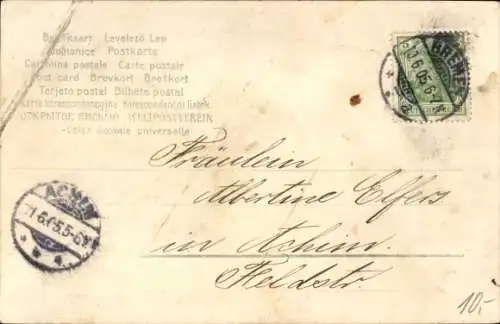 Briefkaart Levelező Lap
Postkarte
Cartolina postale Carte postale
Post card Brevkort Brefkort
Tarjeta postal Bilhete postal
Karta korespondencyjna Korespondenční lístek
ОТКРЫТОЕ ПИСЬМО WELTPOSTVEREIN
Union postale universelle
BREMEN
10.6.05.6-
Fräulein
Albertine Elfers
in Achim.
Feldstr.
ACHIM
11.6.05.5-6
10,-